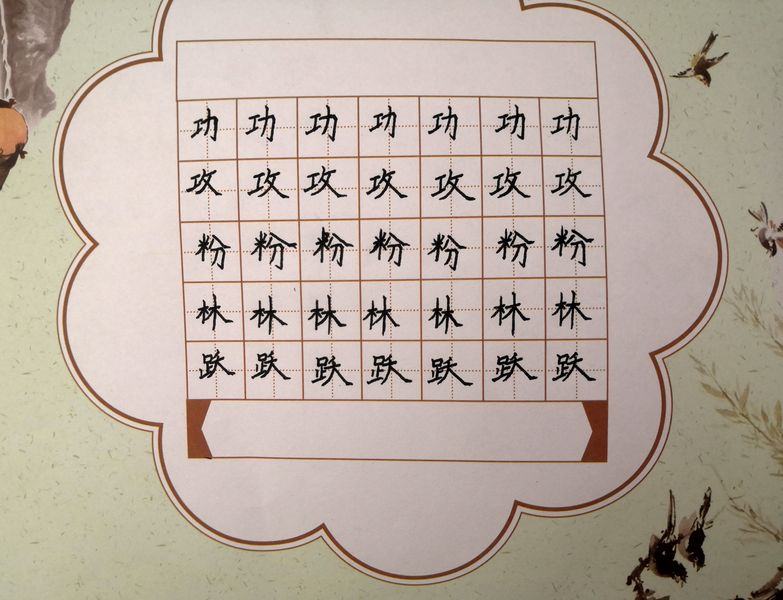 功功功功功功功
攻攻攻攻攻攻攻
粉粉粉粉粉粉粉
林林林林林林林
跃跃跃跃跃跃跃